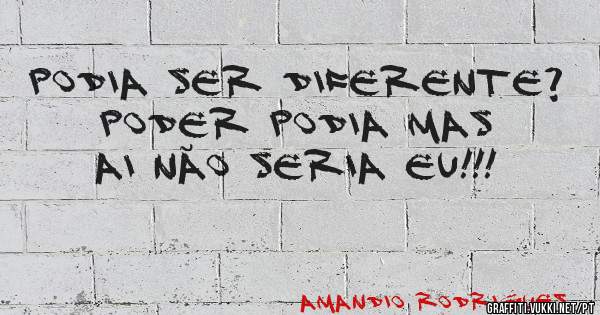 PODIA SER DIFERENTE?
PODER PODIA MAS
AI NÃO SERIA EU!!!
AMANDIO RODRIGUES
GRAFFITI.VUKKI.NET/PT